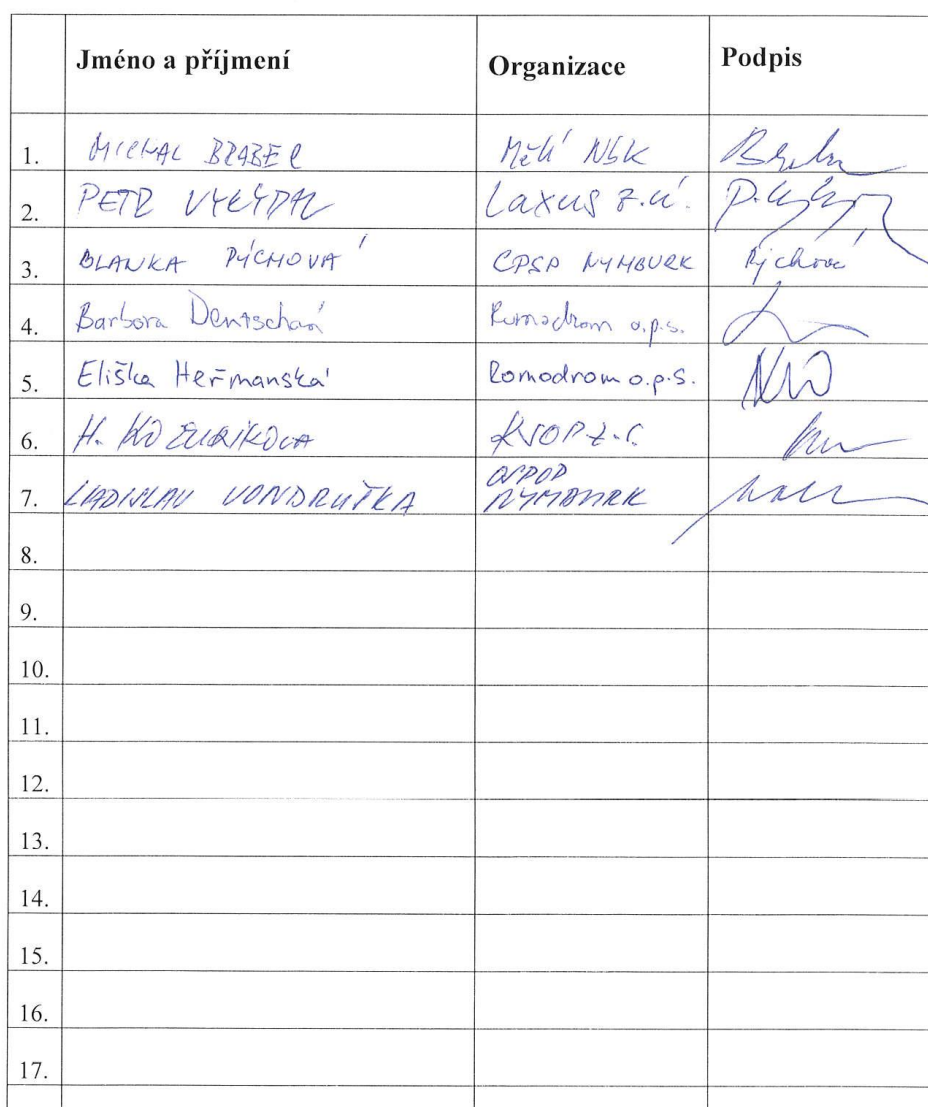 Jméno a příjmení Organizace Podpis
1. MICHAL BRABEC MěÚ NBK
2. PETR VYKÝDAL Laxus z.ú.
3. BLANKA PÝCHOVÁ CPSP NYMBURK Pýchová
4. Barbora Romodrom o.p.s.
5. Eliška Heřmanská Romodrom o.p.s.
6. H.
7. LADISLAV VONDRUŠKA OSPOD NYMBURK
8.
9.
10.
11.
12.
13.
14.
15.
16.
17.